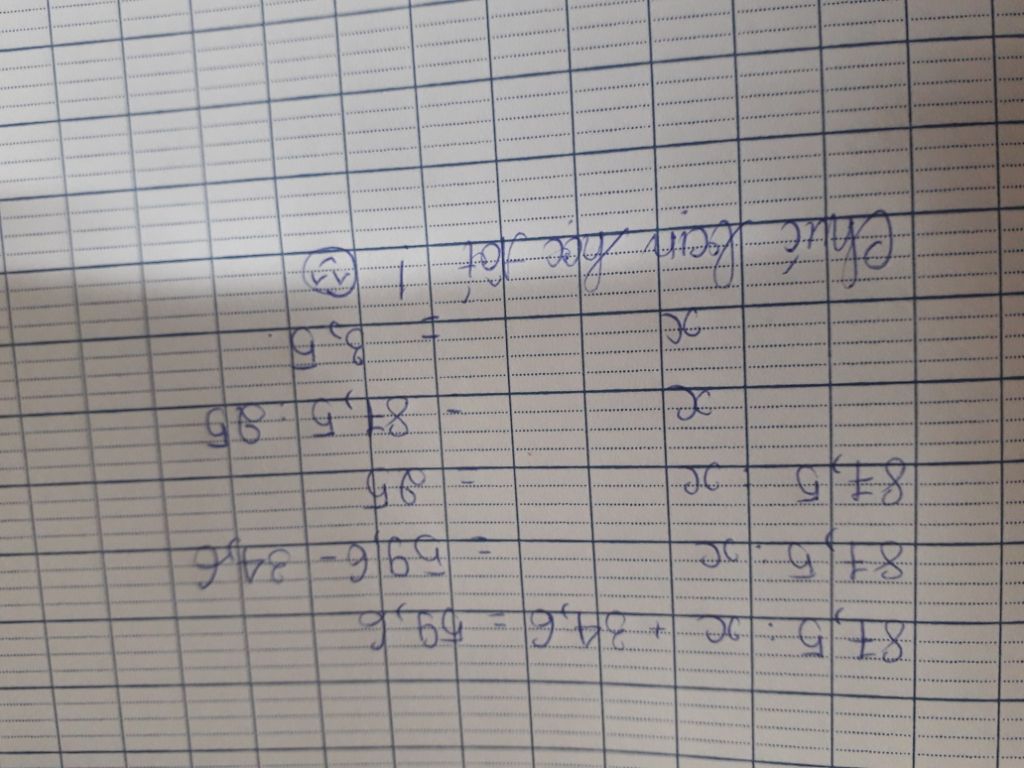 87,5 : x + 34,6 = 59,6
87,5 : x = 59,6 - 34,6
87,5 : x = 25
x = 87,5 : 25
x = 3,5
Chúc bạn học tốt !